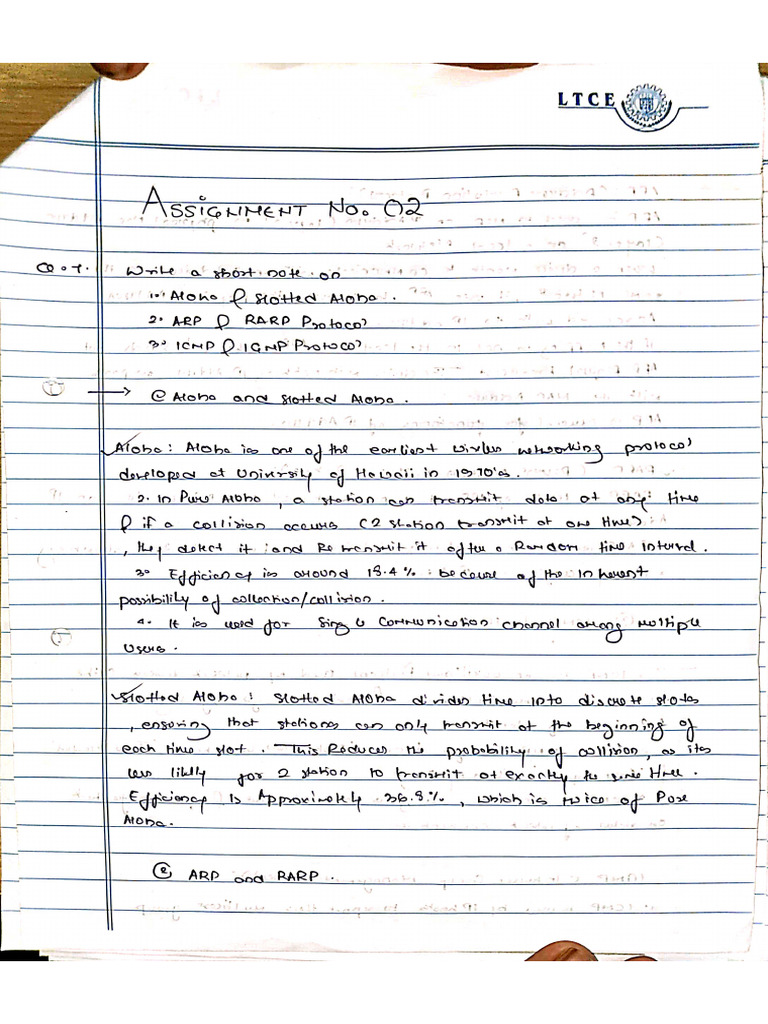 LTCE
ASSIGNMENT No. 02
Q.1. Write a short note on
1. Aloha & Slotted Aloha.
2. ARP & RARP Protocol
3. ICMP & IGMP Protocol
① → @ Aloha and Slotted Aloha.
Aloha: Aloha is one of the earliest wirless networking protocol
developed at University of Hawaii in 1970's.
2. In Pure Aloha, a station can transmit data at any time
& if a collision occurs (2 station transmit at one time)
, they detect it and Retransmit it after a Random time interval.
3. Efficiency is around 18.4% because of the Inherent
possibility of collection/collision.
4. It is used for Single Communication channel among multiple
Users.
Slotted Aloha: Slotted Aloha divides time into discrete slots
, ensuring that stations can only transmit at the beginning of
each time slot. This Reduces the probability of collision, as its
less likly for 2 station to transmit at exactly the same time.
Efficiency Is Approximately 36.8%, which is twice of Pure
Aloha.
② ARP and RARP.